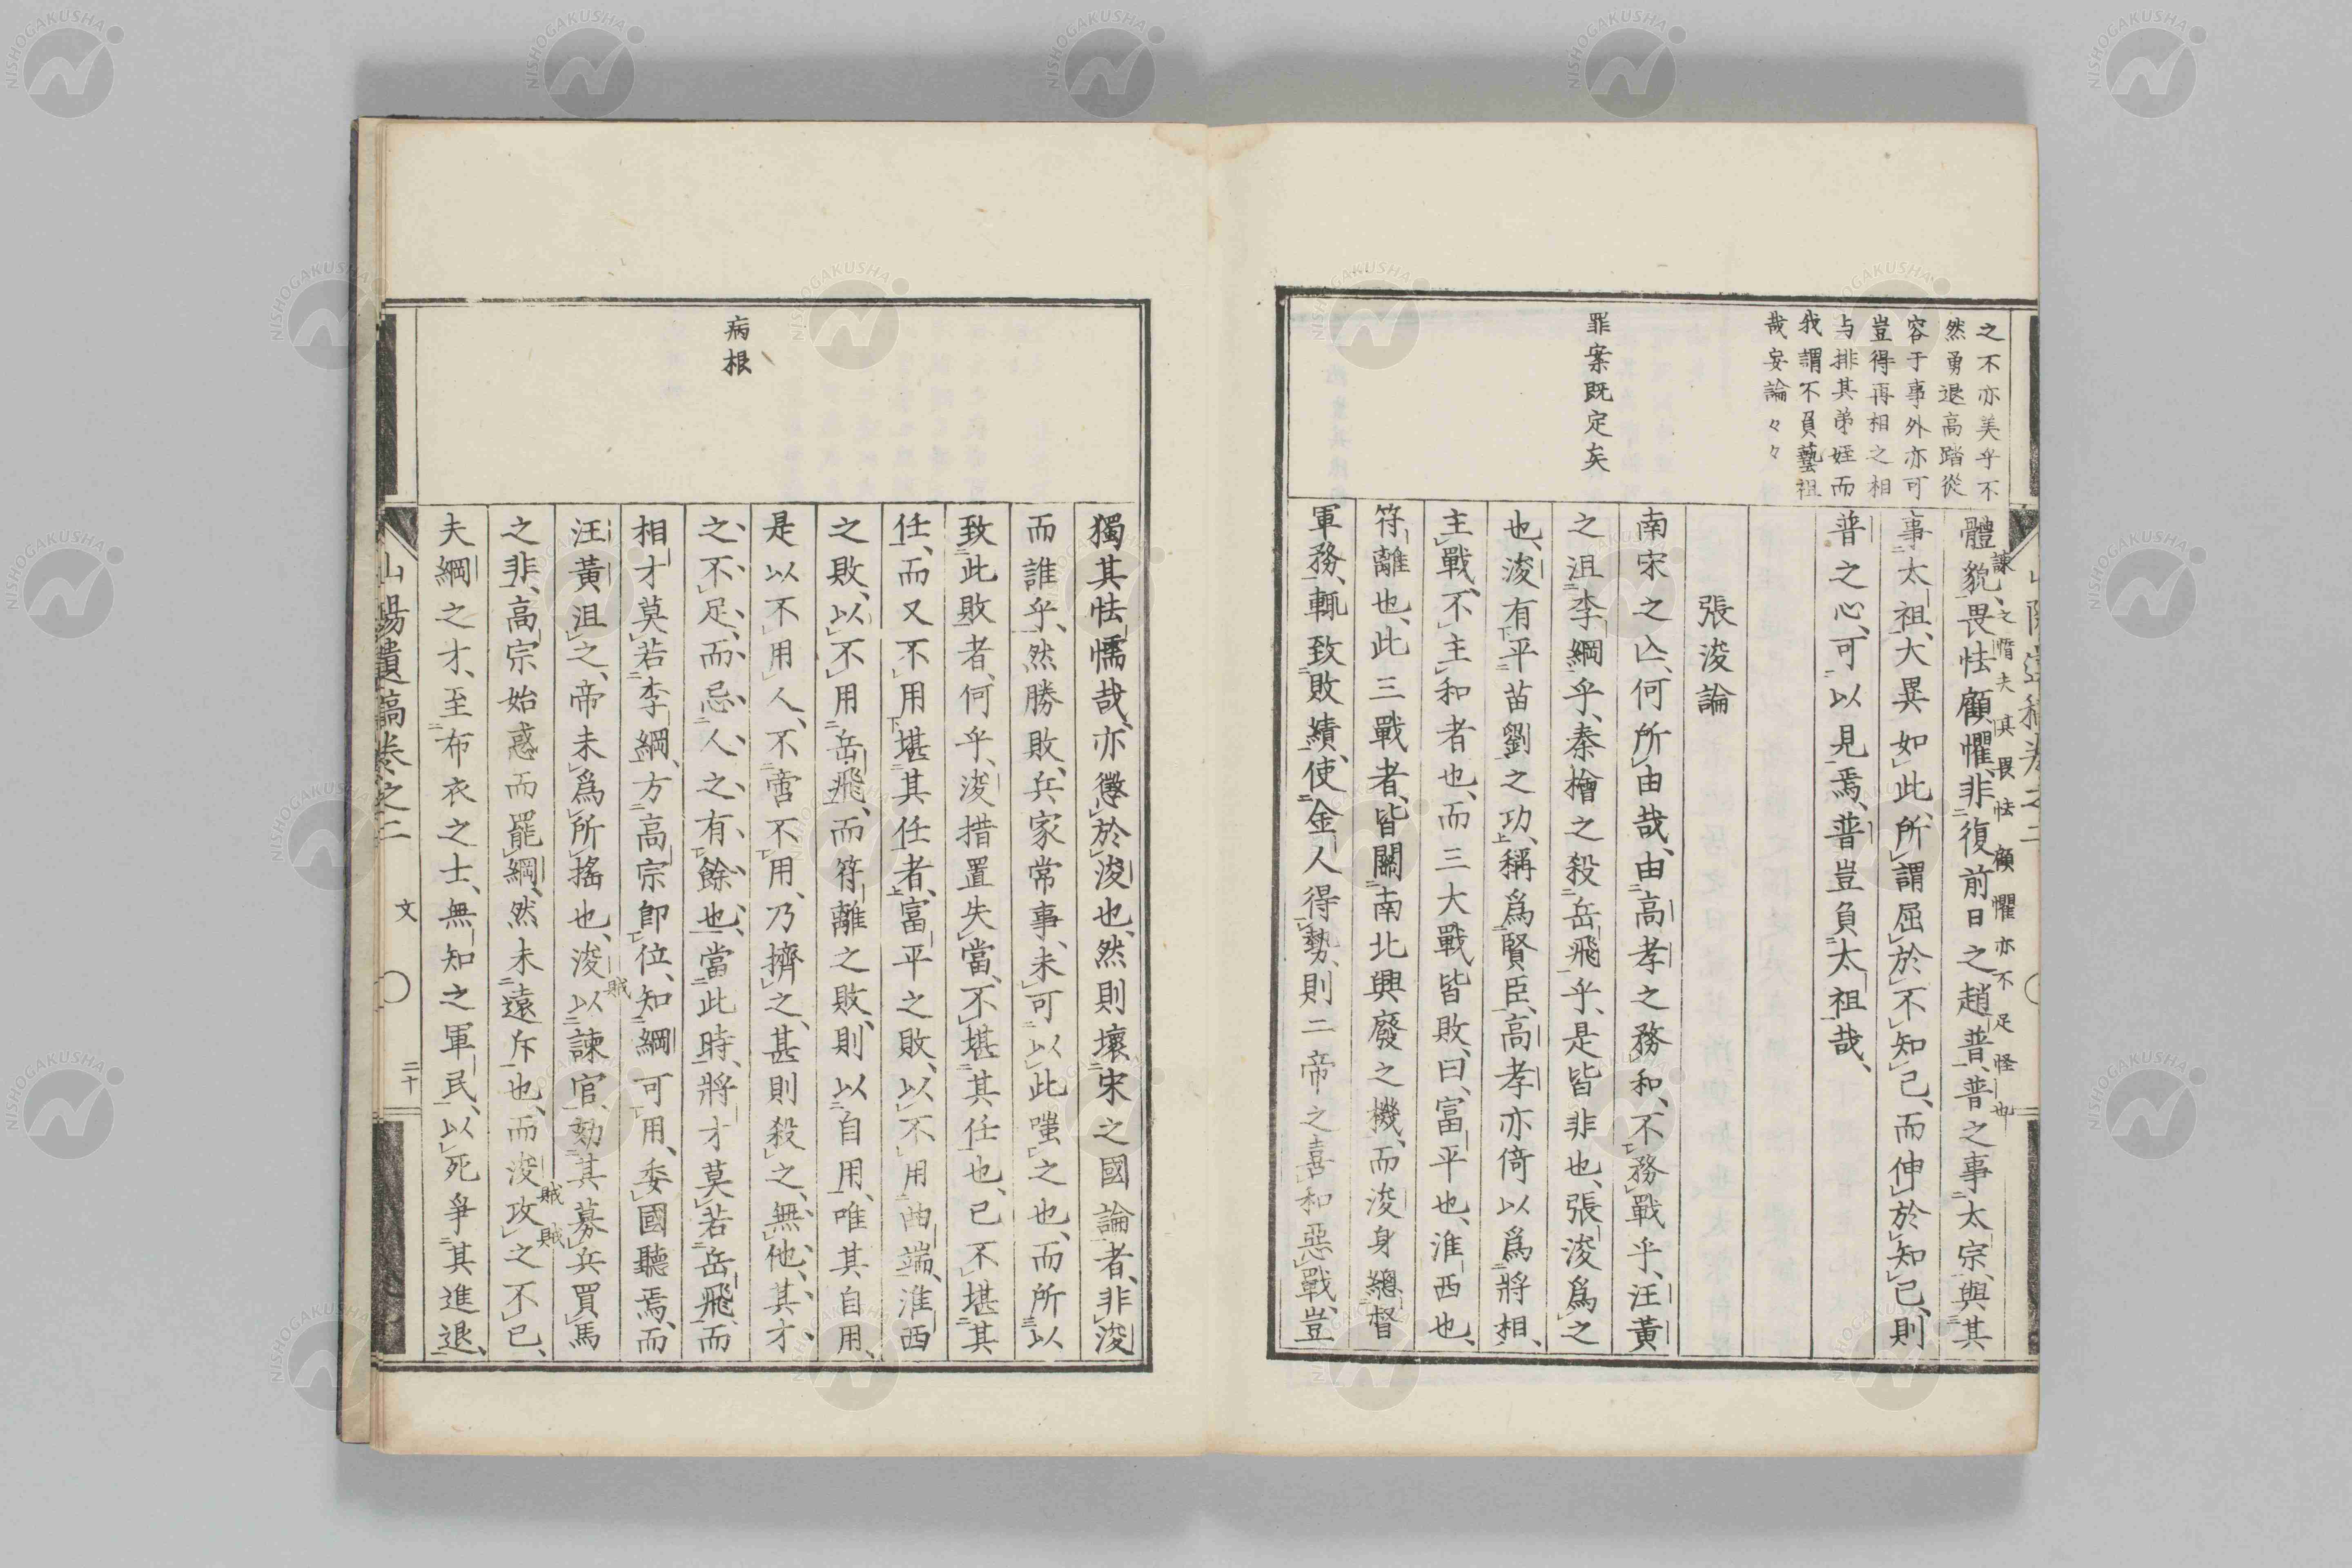 之不亦美乎不
然勇退高踏從
容于事外亦可
豈得再相之相
与排其弟姪而
我謂不負藝祖
哉妄論々々
體貌、畏怯顧懼、非復前日之趙普、普之事太宗、與其
諫之暗夫其畏怯顧懼亦不足怪也
事太祖、大異如此、所謂屈於不知己、而伸於知己、則
普之心、可以見焉、普豈負太祖哉、
張浚論
罪案既定矣
南宋之亾、何所由哉、由高孝之務和、不務戰乎、汪黃
之沮李綱乎、秦檜之殺岳飛乎、是皆非也、張浚爲之
也、浚有平苗劉之功、稱爲賢臣、高孝亦倚以爲將相、
主戰、不主和者也、而三大戰皆敗、曰、富平也、淮西也、
符離也、此三戰者、皆關南北興廢之機、而浚身總督
軍務、輒致敗績、使金人得勢、則二帝之喜和惡戰、豈
獨其怯懦哉、亦懲於浚也、然則壞宋之國論者、非浚
而誰乎、然勝敗、兵家常事、未可以此嗤之也、而所以
致此敗者、何乎、浚措置失當、不堪其任也、己不堪其
任、而又不用堪其任者、富平之敗、以不用曲端、淮西
之敗、以不用岳飛、而符離之敗、則以自用、唯其自用、
是以不用人、不啻不用、乃擠之、甚則殺之、無他、其才
之不足、而忌人之有餘也、當此時、將才莫若岳飛、而
病根
相才莫若李綱、方高宗卽位、知綱可用、委國聽焉、而
汪黃沮之、帝未爲所搖也、浚以諫官、劾其募兵買馬
賊
之非、高宗始惑而罷綱、然未遠斥也、而浚攻之不已、
賊賊
夫綱之才、至布衣之士、無知之軍民、以死爭其進退、
山陽遺稿卷之二 文 二十
NISHOGAKUSHA